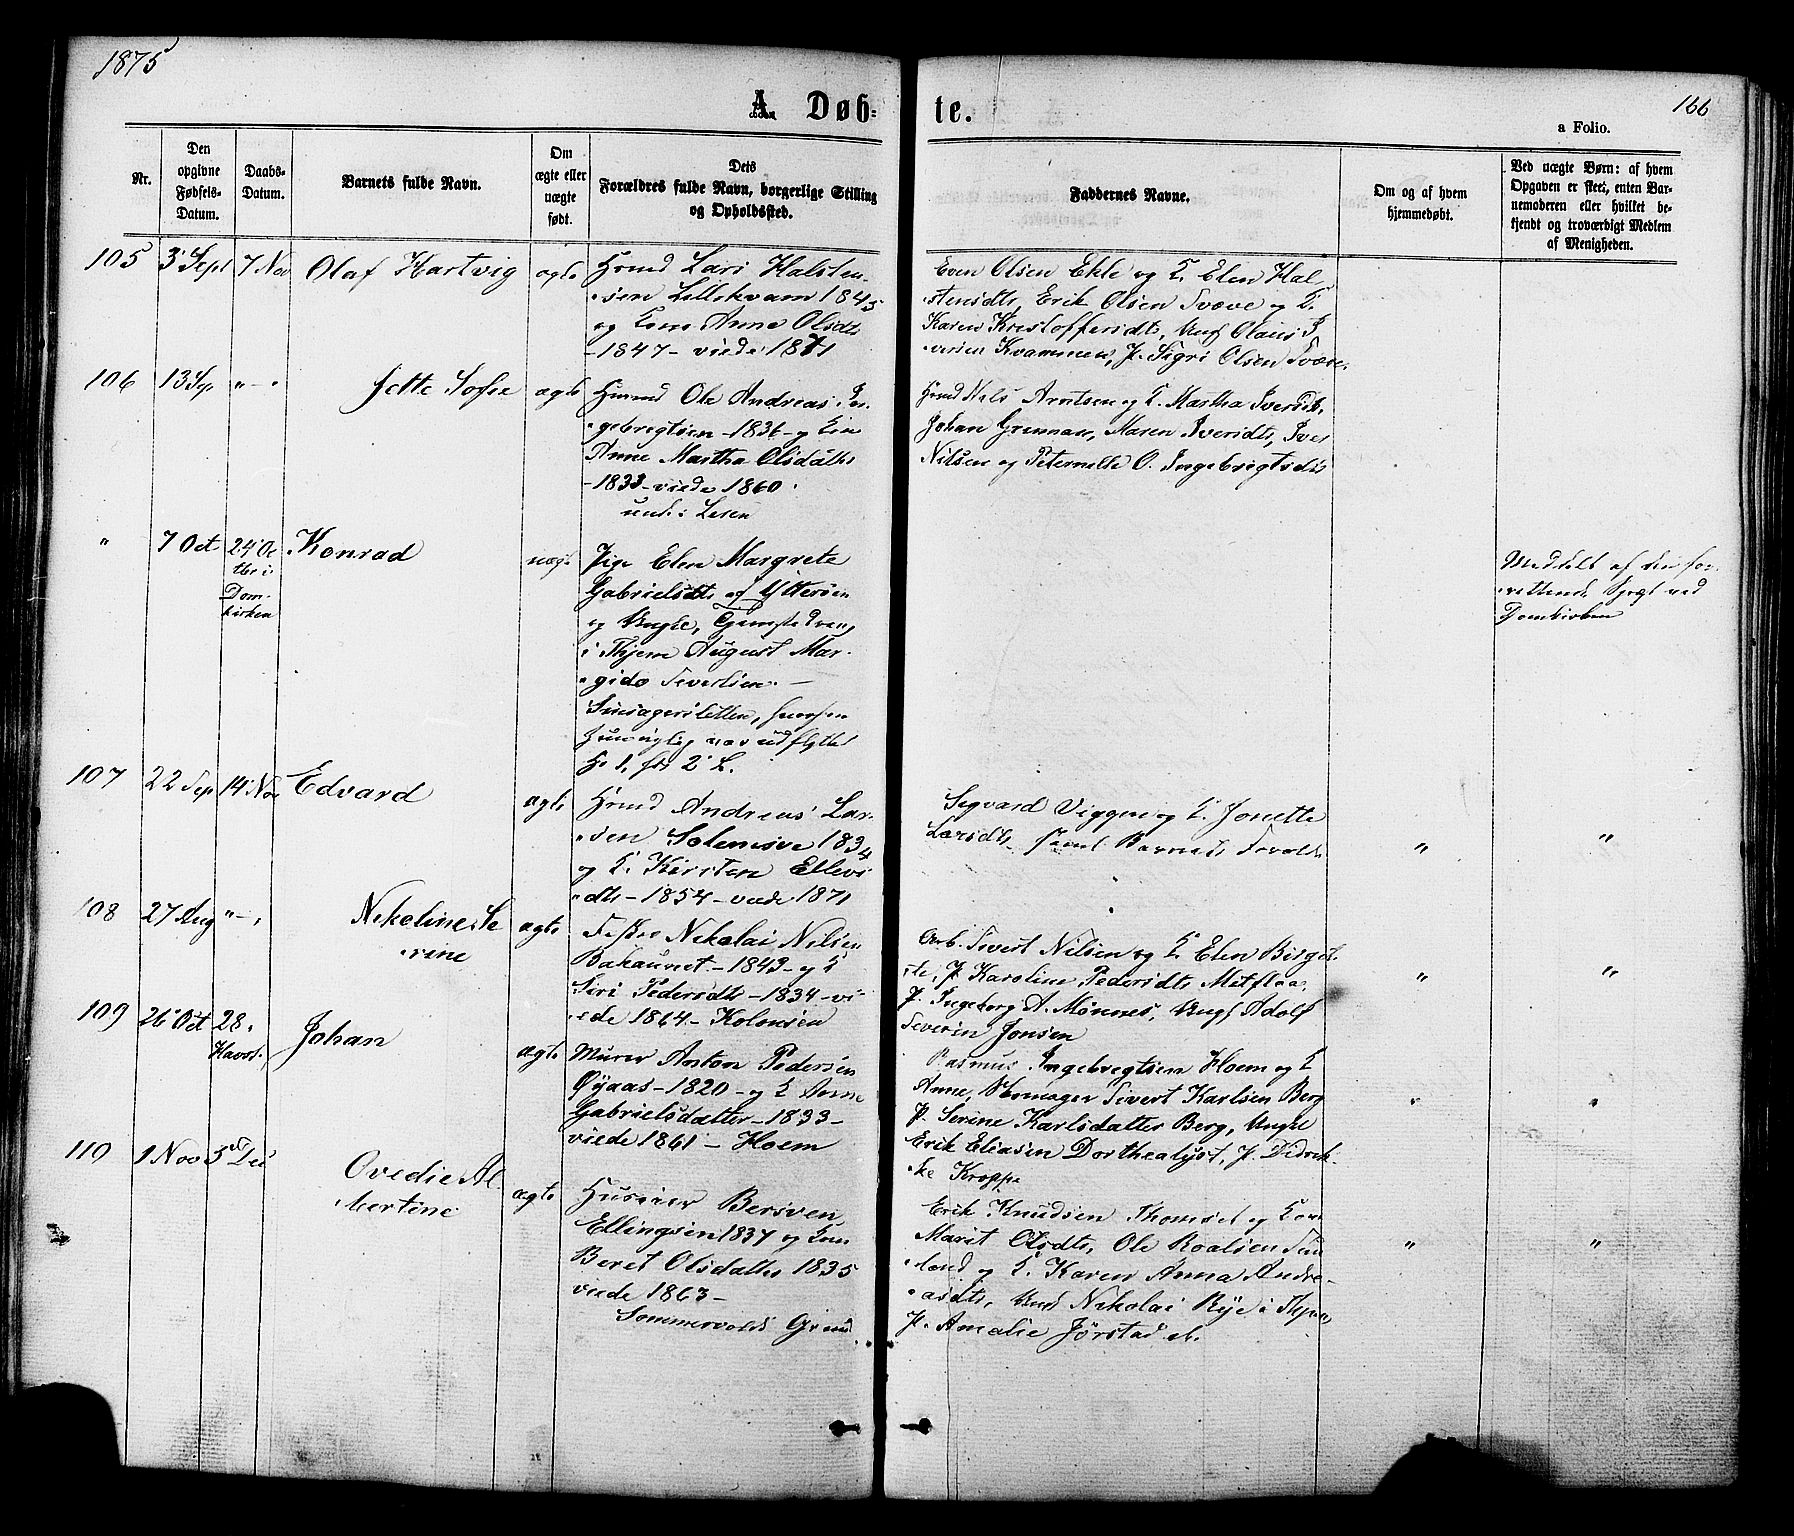 1875
A. Døb-
te.
166
a Folio.
Nr.
Den opgivne Fødsels-Datum.
Daabs-Datum.
Barnets fulde Navn.
Om ægte eller uægte født.
Dets Forældres fulde Navn, borgerlige Stilling og Opholdssted.
Faddernes Navne.
Om og af hvem hjemmedøbt.
Ved uægte Børn: af hvem Opgaven er skeet, enten Barnemoderen eller hvilket bekjendt og troværdigt Medlem af Menigheden.
105 3 Sept 7 Nov Olaf Hartvig ægte
Hmd Lars Halsten-
sen Lillekvam 1845
og Kone Anne Olsdtr
-1847- viede 1871
Even Olsen Ekle og K. Elen Hal-
stensdtr, Erik Olsen Tvæve og K.
Karen Kristoffersdtr, Ungk Olaus I-
versen Kvammen, P. Sigri Olsen Tvæve
106 13 Sep " - " Jette Sofie ægte
Husmd Ole Andreas In-
gebregtsen -1836- og Kone
Anne Martha Olsdatter
-1833- viede 1860
Hmd Nils Arntsen og K. Martha Iversdtr,
Johan Grennan, Maren Iversdtr, Iver
Nilsen og Peternelle O. Ingebrigtsdtr
" 7 Oct 24 Oc Konrad uægt
tbr i
Dom-
kirken
Pige Elen Margrete
Gabrielsdtr af Ytterøen
og Ungke, Gjenstedreng
i Thjem August Mar-
gido Severtsen. -
Sinsagersletten, hvorfra
hun
F. 1, for 2 L.
Meddelt af den for-
rettende Præst ved
Domkirken
107 22 Sep 14 Nov Edvard ægte
Hmd Andreas Lar-
sen Solemsve 1834
og K. Kirsten Ellevs
dtr - 1854 - viede 1871
Sigvard Viggen og K. Jonette
Larsdtr
" "
108 27 Aug " - " Nikoline Se ægte
verine
Fisker Nikolai Nilsen
Bakaunet -1843- og K
Siri Pedersdtr -1834- vi-
ede 1864 - Kolonsen
Arb. Sivert Nilsen og K Elen Birget
te, P. Karoline Pedersdtr
P. Ingeborg A. Mønnes, Ungk Adolf
Severin Jonsen
" "
109 26 Oct 28 Johan ægte
Havst.
Murer Anton Pedersen
Øyaas -1820- og K Anne
Gabrielsdatter -1833-
viede 1861 - Hoem
Rasmus Ingebregtsen Hoem og K
Anne, Skomager Sivert Karlsen Berg
P. Serine Karlsdatter Berg, Ungke
Erik Eliasen Dorthealyst, P. Didrik-
ke Kroppe
" "
110 1 Nov 5 Dec Ovedie Al ægte
bertine
Husmd Bersven
Ellingsen 1837 og Kone
Beret Olsdatter 1835
viede 1863 -
Sommervolds Grund
Erik Knudsen Thomset og Kone
Marit Olsdtr, Ole Roalsen Sun
land og K. Karen Anna Andre-
asdtr, Ungk Nikolai Rye i Thjen,
P. Amalie Jørstad
" "